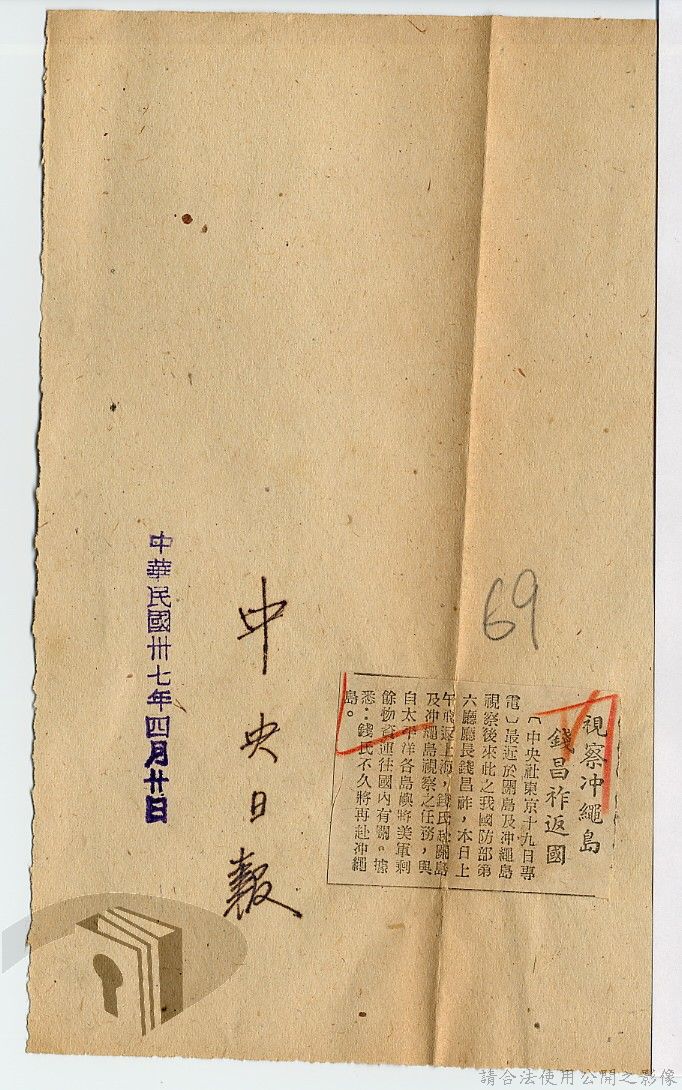 69
視察冲繩島
錢昌祚返國
〔中央社東京十九日專
電〕最近於關島及沖繩島
視察後來此之我國防部第
六廳廳長錢昌祚，本日上
午飛返上海，錢氏赴關島
及沖繩島視察之任務，與
自太平洋各島嶼將美軍剩
餘物資運往國內有關。據
悉：錢氏不久將再赴沖繩
島。
中央日報
中華民國卅七年四月廿日
請合法使用公開之影像